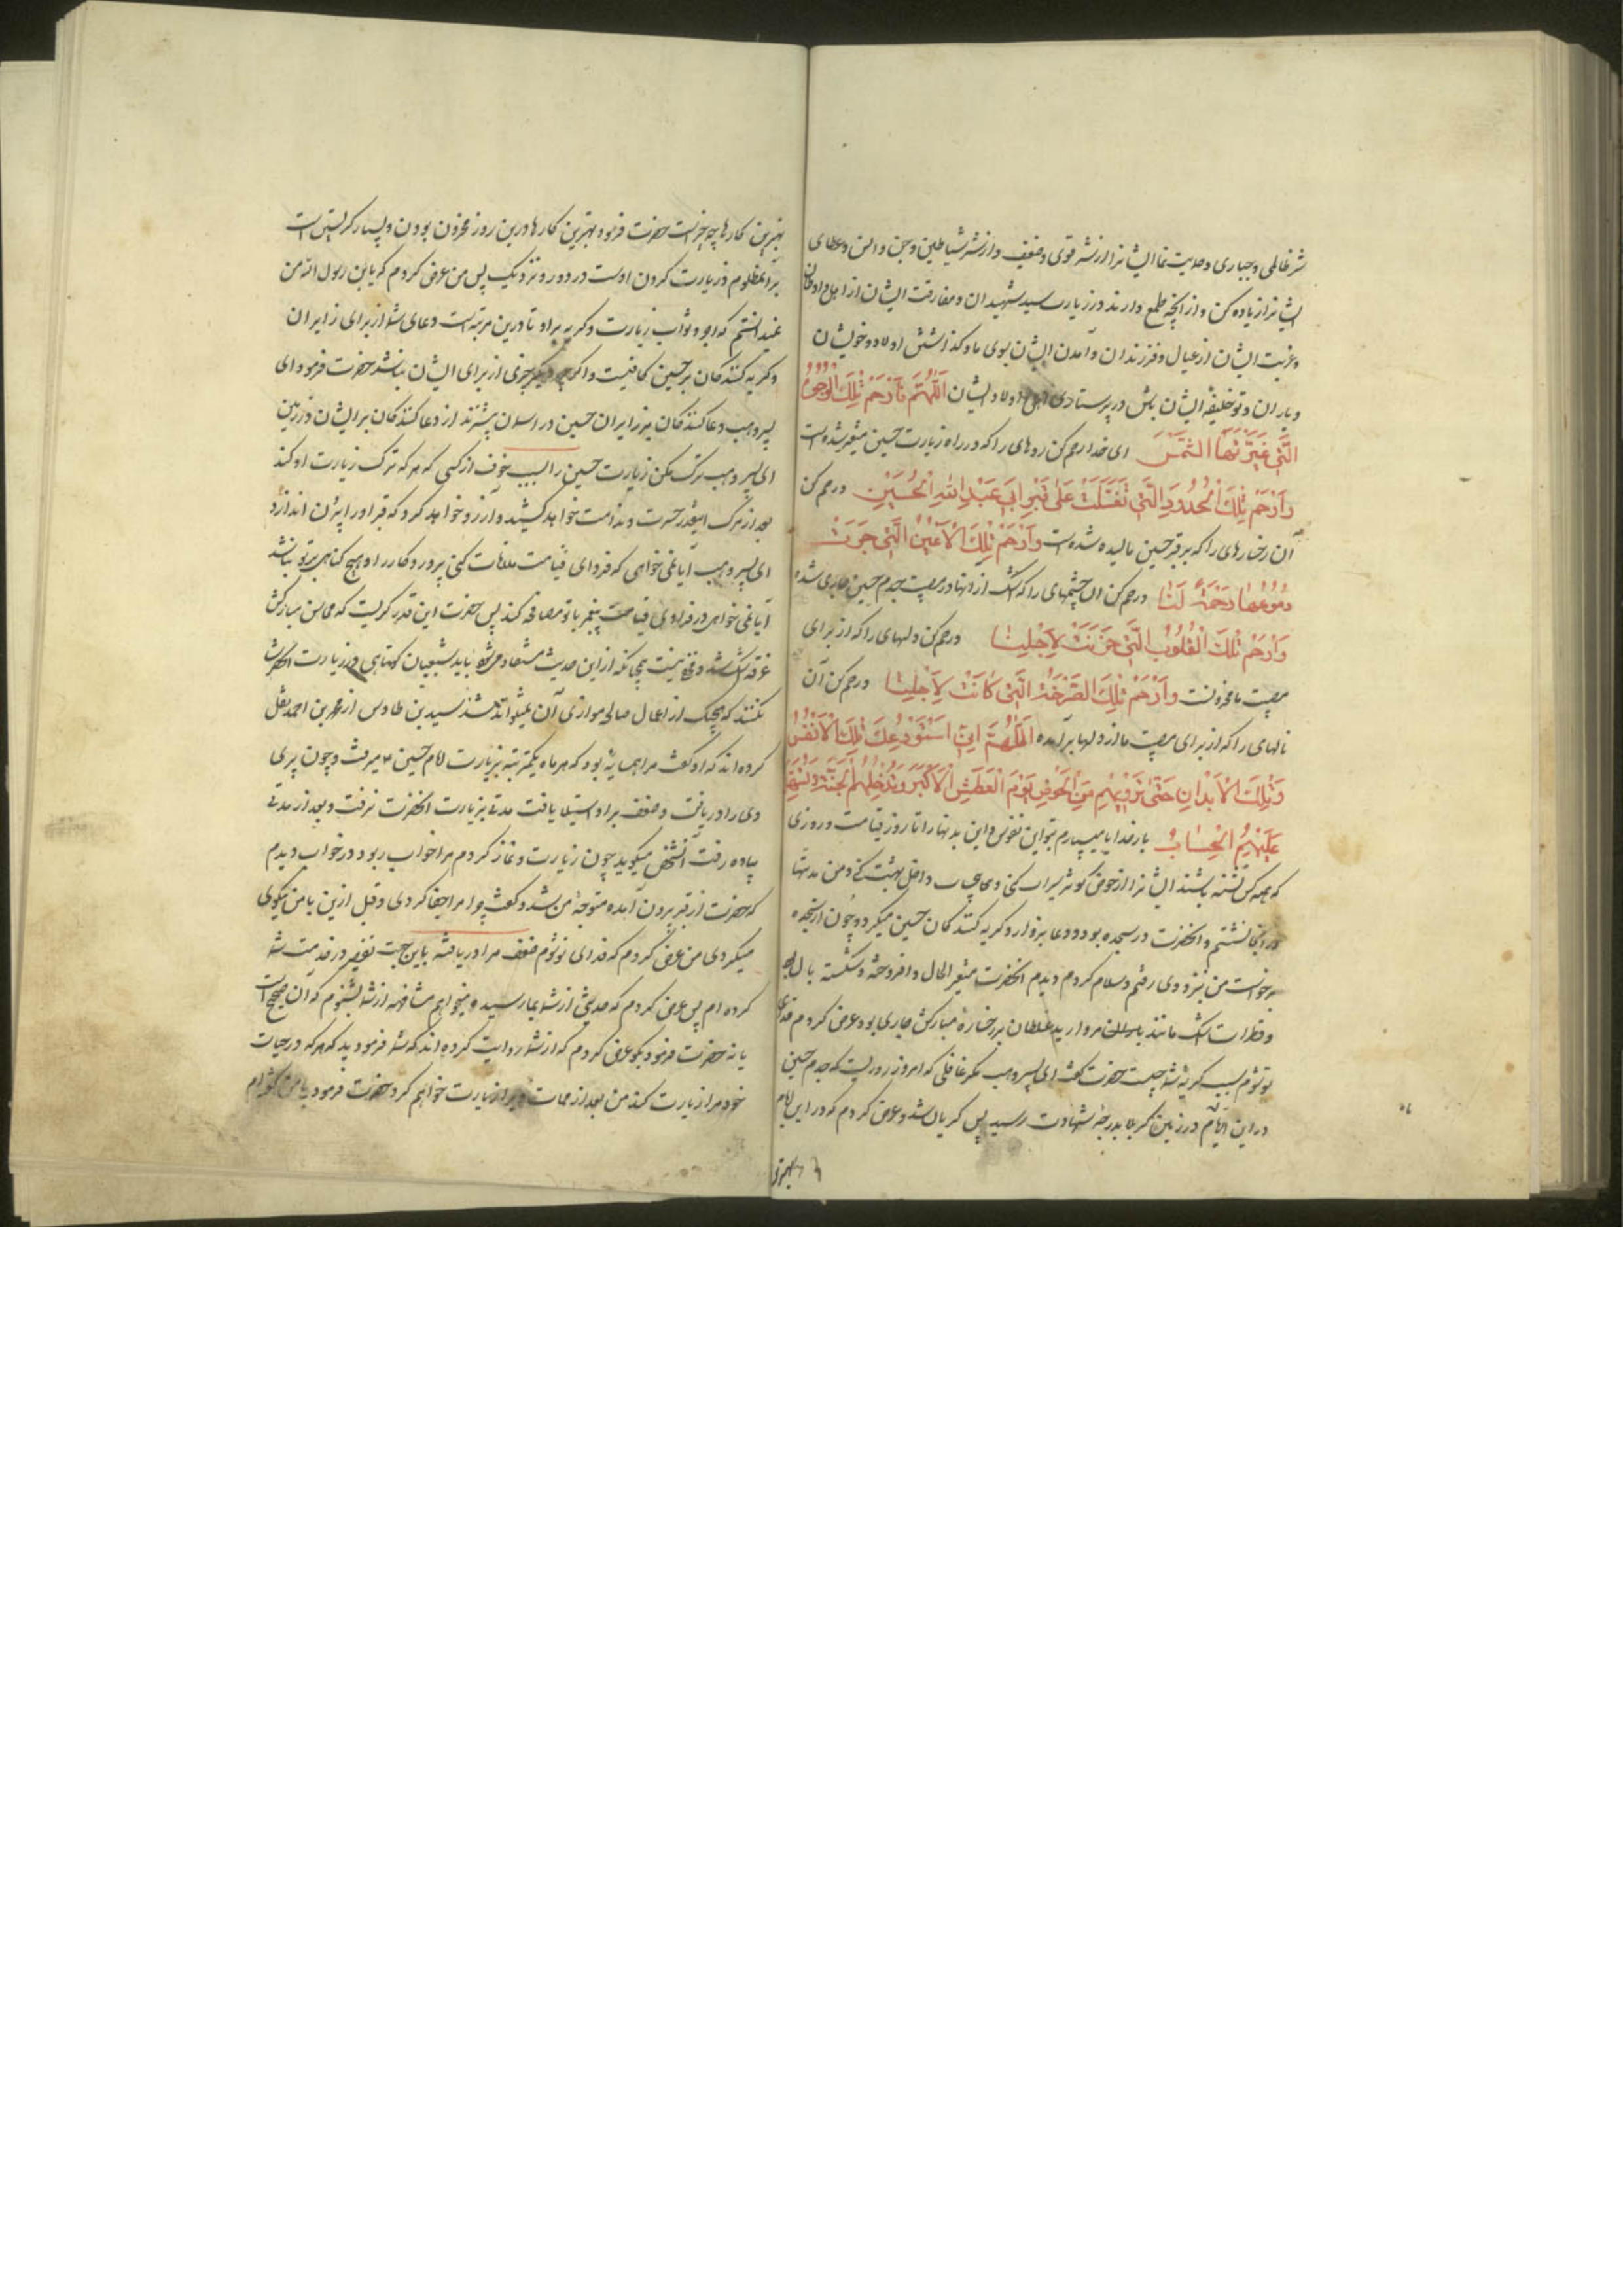 شر ظالمی و جباری و حمایت نما ایشانرا از شر قوی و ضعیف و از شر شیاطین و جن و انس و عطای
ایشانرا زیاده کن و از آنچه طمع دارند در زیارت سید شهیدان و مفارقت ایشان از اهل و اوطان
و غربت ایشان از عیال و فرزندان و آمدن ایشان بسوی ما و گذاشتن اولاد و خویشان
و یاران و تو خلیفه ایشان باش در پرستاری اهل و اولاد ایشان اَللّٰهُمَّ فَارْحَمْ تِلْكَ الْوُجُوهَ
الَّتِي غَيَّرَتْهَا الشَّمْسُ ای خدا رحم کن روهای را که در راه زیارت حسین متغیر شده است
وَارْحَمْ تِلْكَ الْخُدُودَ الَّتِي تَقَلَّبَتْ عَلٰى قَبْرِ اَبِي عَبْدِ اللّٰهِ الْحُسَيْنِ و رحم کن
آن رخسارهای را که بر قبر حسین مالیده شده است وَارْحَمْ تِلْكَ الْاَعْيُنَ الَّتِي جَرَتْ
دُمُوعُهَا رَحْمَةً لَنَا و رحم کن آن چشمهای را که اشک از آنها در مصیبت جدم حسین جاری شده
وَارْحَمْ تِلْكَ الْقُلُوبَ الَّتِي حَزَنَتْ لِاَجْلِنَا و رحم کن دلهای را که از برای
مصیبت ما محزونست وَارْحَمْ تِلْكَ الصَّرْخَةَ الَّتِي كَانَتْ لِاَجْلِنَا و رحم کن آن
نالهای را که از برای مصیبت ما از دلها برآمده اَللّٰهُمَّ اِنِّي اَسْتَوْدِعُكَ تِلْكَ الْاَنْفُسَ
وَتِلْكَ الْاَبْدَانَ حَتّٰى تَرْوِيَهُمْ مِنَ الْحَوْضِ يَوْمَ الْعَطَشِ الْاَكْبَرِ وَتُدْخِلَهُمُ الْجَنَّةَ وَتُسَهِّلَ
عَلَيْهِمُ الْحِسَابَ بار خدایا میسپارم بتو این نفوس و این بدنها را تا روز قیامت و روزی
که همه کس تشنه باشند ایشانرا از حوض کوثر سیراب کنی و بی حساب داخل بهشت کنی و من مدتها
در آنجا نشستم و آنحضرت در سجده بود و دعا بزوار و گریه کنندگان حسین میکرد و چون از سجده
برخواست من بنزد وی رفتم و سلام کردم دیدم آنحضرت متغیر الحال و افروخته و شکسته بال
و قطرات اشک مانند مروارید غلطان بر رخساره مبارکش جاری بود عرض کردم فدای
تو شوم سبب گریه شما چیست حضرت گفت ای پسر وهب مگر غافلی که امروز روزیست که جدم حسین
در این ایام در زمین کربلا بدرجه شهادت رسید پس گریان شد و عرض کردم که در این ایام
بهترین
بهترین کارها چه چیز است حضرت فرمود بهترین کارها درین روز محزون بودن و بسیار گریستن است
بر آنمظلوم و زیارت کردن اوست در دور و نزدیک پس من عرض کردم که یا بن رسول الله من
نمیدانستم که اجر و ثواب زیارت و گریه بر او تا درین مرتبه است دعای شما از برای زایران
و گریه کنندگان بر حسین کافیست و اگرچه دیگر چیزی از برای ایشان نباشد حضرت فرمود ای
پسر وهب دعا کنندگان بر زایران حسین در آسمان بیشترند از دعا کنندگان بر ایشان در زمین
ای پسر وهب ترک مکن زیارت حسین را بسبب خوف از کسی که هر که ترک زیارت او کند
بعد از مرگ آنقدر حسرت و ندامت خواهد کشید و آرزو خواهد کرد که قبر او را
ای پسر وهب آیا نمی خواهی که فردای قیامت ملاقات کنی پروردگار را و هیچ گناهی بر تو نباشد
آیا نمی خواهی در فردای قیامت پیغمبر با تو مصافحه کند پس حضرت این قدر گریست که محاسن مبارکش
غرقه اشک شد و مخفی نیست چنانکه از این حدیث مستفاد میشود باید شیعیان کوتاهی در زیارت آنحضرت
نکنند که هیچیک از اعمال صالحه موازی آن نمیتواند شد سید بن طاوس از محمد بن احمد نقل
کرده اند که او گفت مرا همسایه بود که هر ماه یکمرتبه بزیارت امام حسین ع میرفت و چون پیری
وی را دریافت و ضعف بر او استیلا یافت مدتی بزیارت آنحضرت نرفت و بعد از مدتی
پیاده رفت آنشخص میگوید چون زیارت و نماز کردم مرا خواب ربود در خواب دیدم
که حضرت از قبر بیرون آمده متوجه من شد و گفت چرا مرا جفا کردی و قبل ازین با من نیکوی
میکردی من عرض کردم که فدای تو شوم ضعف مرا دریافته باین جهت تقصیر در خدمت شما
کرده ام پس عرض کردم که حدیثی از شما بما رسیده میخواهم مشافهه از شما بشنوم که آن صحیح است
یا نه حضرت فرمود بگو عرض کردم که از شما روایت کرده اند که شما فرمودید که هر که در حیات
خود مرا زیارت کند من بعد از ممات او را زیارت خواهم کرد حضرت فرمود